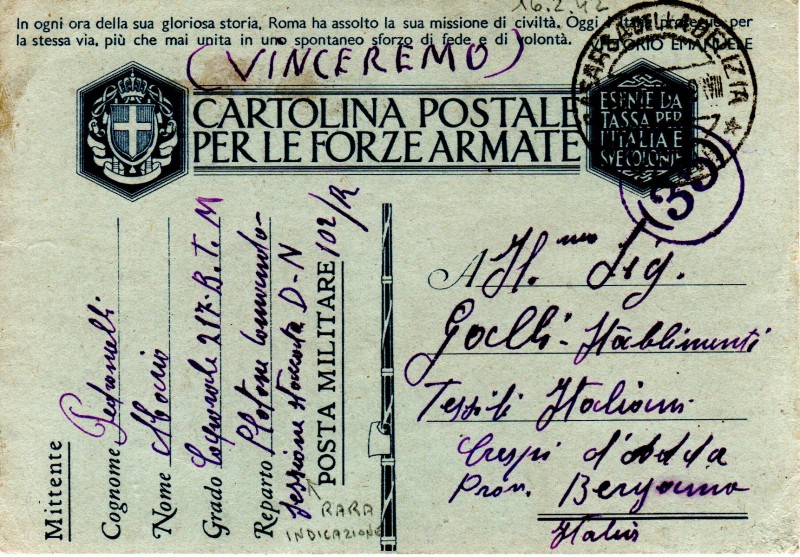 16.2.42
In ogni ora della sua gloriosa storia, Roma ha assolto la sua missione di civiltà. Oggi l'Italia prosegue per
la stessa via, più che mai unita in uno spontaneo sforzo di fede e di volontà. VITTORIO EMANUELE
(VINCEREMO)
CARTOLINA POSTALE
PER LE FORZE ARMATE
ESENTE DA
TASSA PER
L'ITALIA E
SVE COLONIE
33
A Ill.mo Sig.
Gaelli - Stablimenti
Tessili Italiani
Crespi d'Adda
Prov. Bergamo
Italia
Mittente
Cognome Pedronelli
Nome Mario
Grado Caporale 217. B. T. M
Reparto Plotone Comando -
sezione staccata D - N
POSTA MILITARE 102/R
RARA
INDICAZIONE